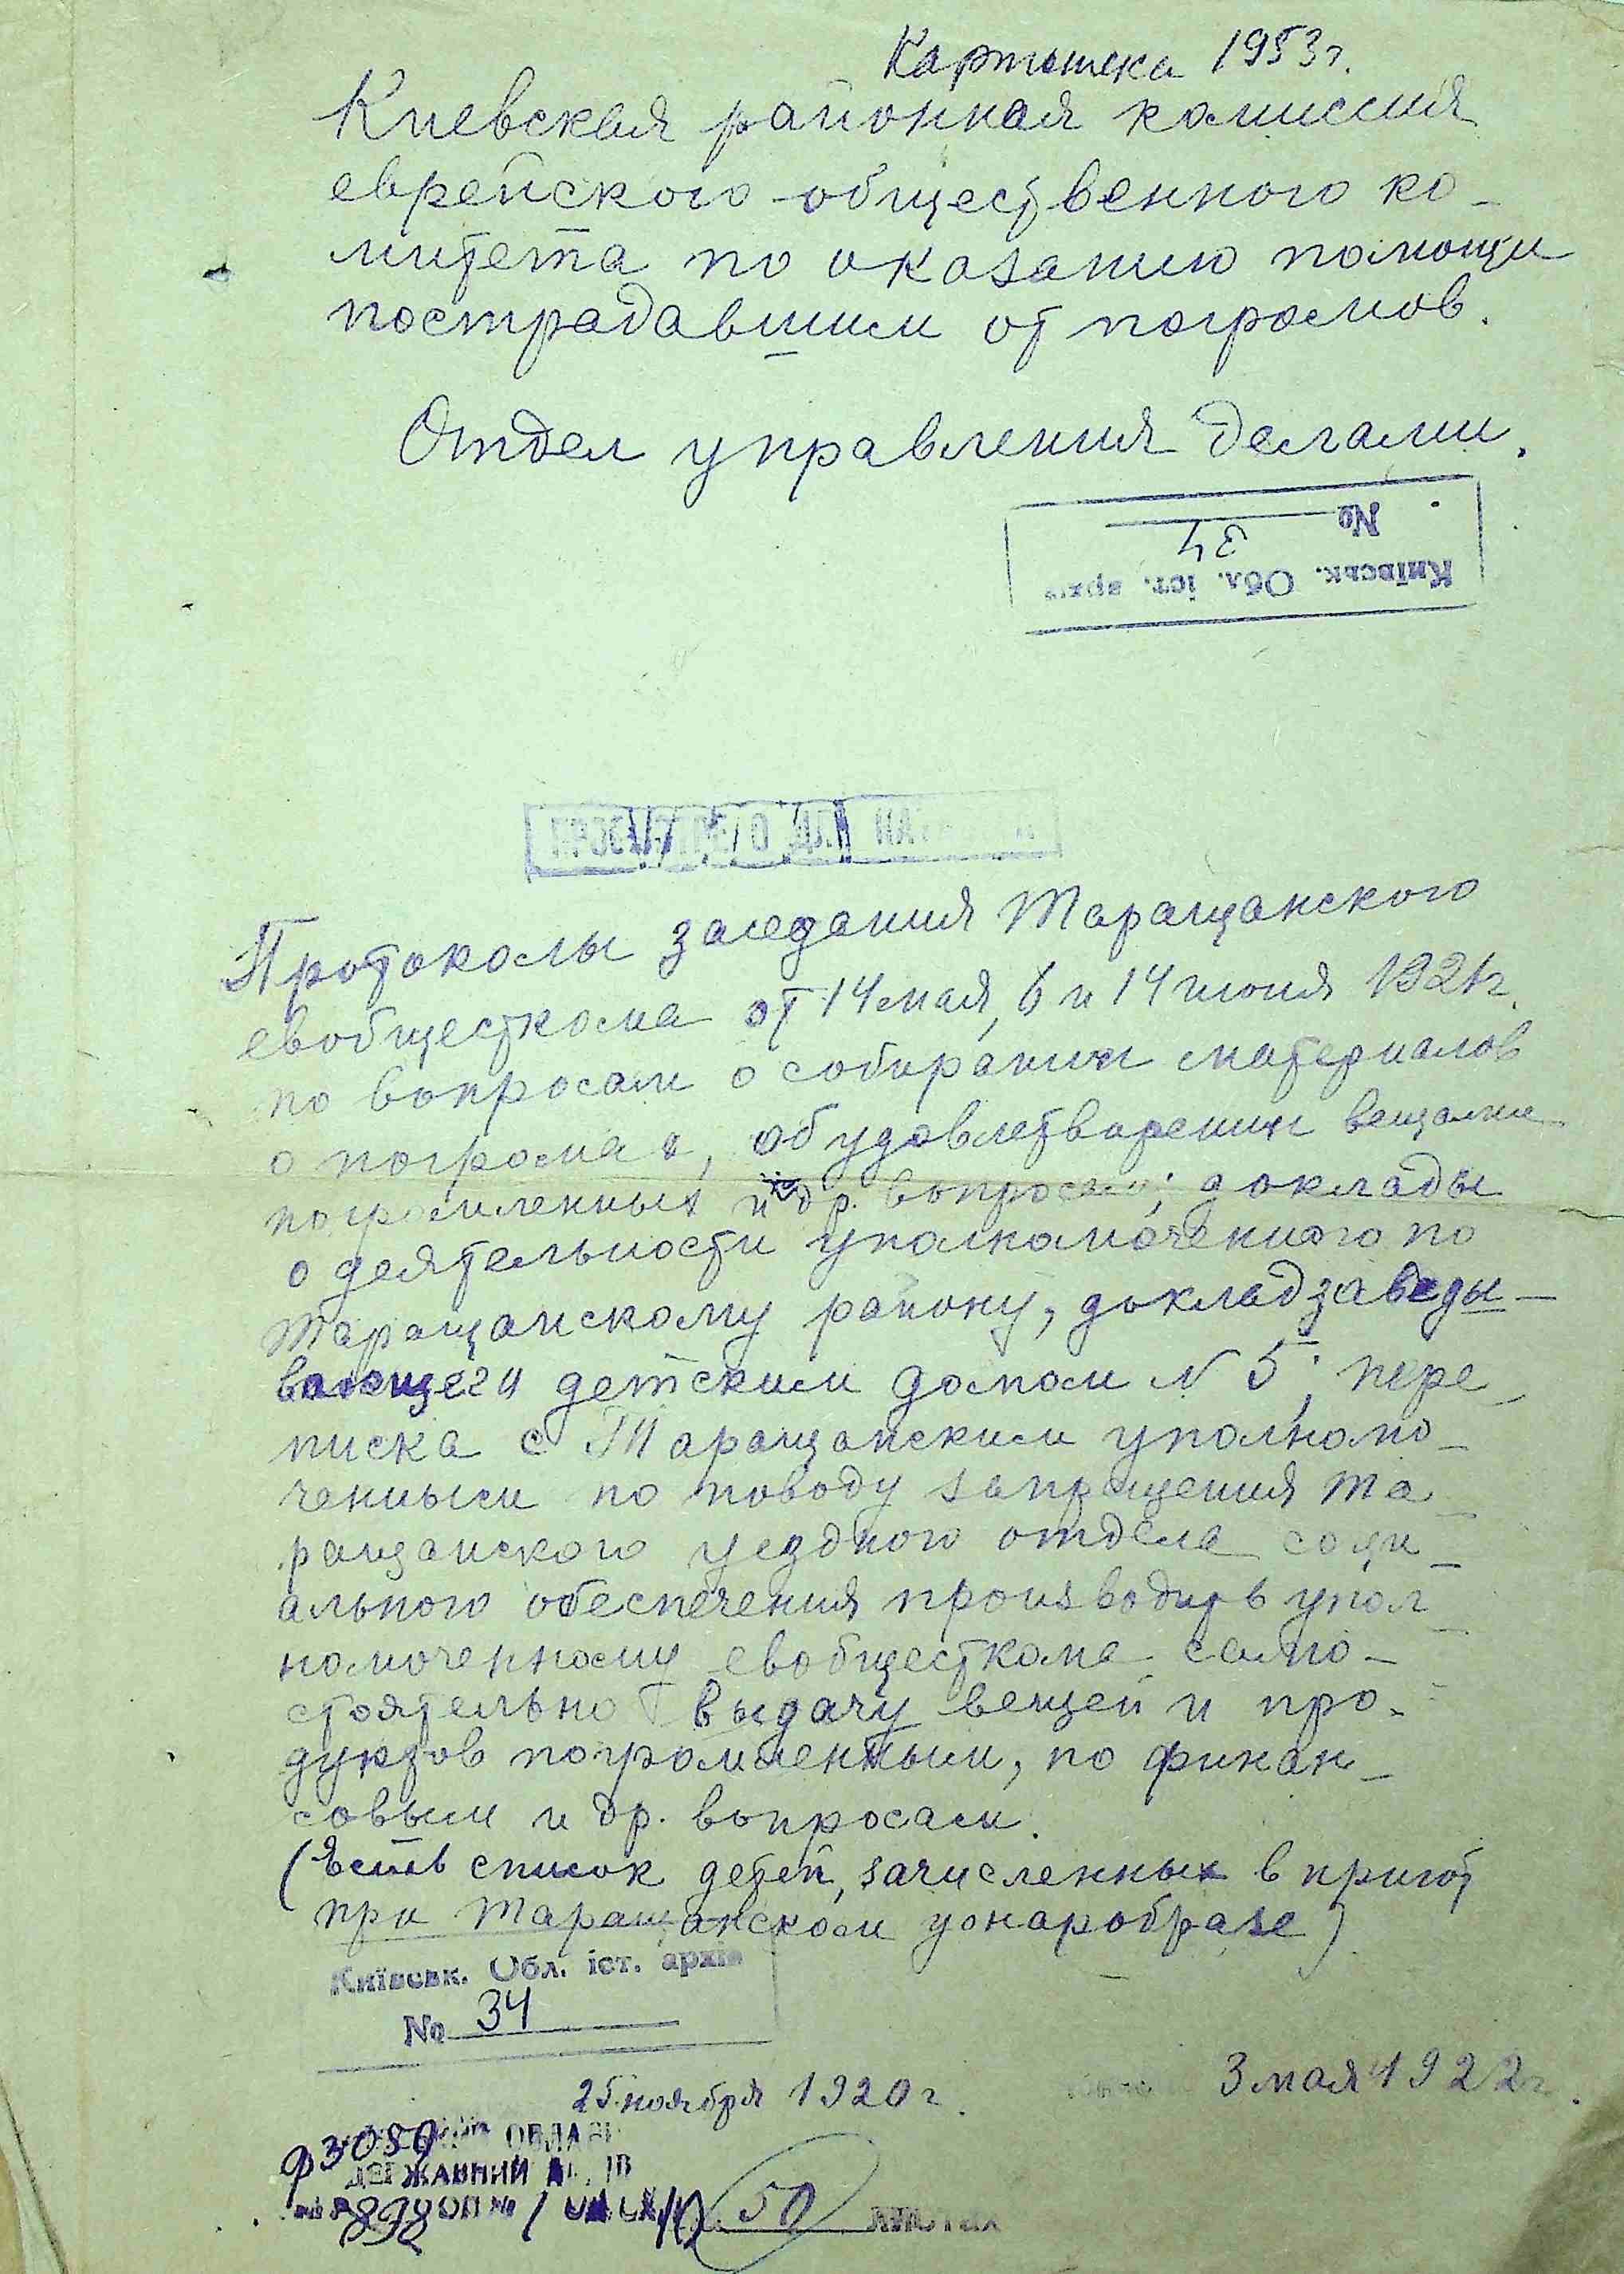 Картотека 1953 г.
Киевская районная комиссия
еврейского общественного ко-
митета по оказанию помощи
пострадавшим от погромов.
Отдел управления делами.
Київськ. Обл. іст. архів
№ 34
Протоколы заседания Таращанского
евобщесткома от 14 мая, 6 и 14 июня 1921 г.
по вопросам о собирании материалов
о погромах, об удовлетворении вещами
погромленных и др. вопросам; доклады
о деятельности уполномоченного по
Таращанскому району, доклад заведы-
вающего детским домом N 5; пере
писка с Таращанским уполномо-
ченным по поводу запрещения Та
ращанского уездного отдела соци-
ального обеспечения производить упол
номоченному евобщесткома само-
стоятельно выдачу вещей и про-
дуктов погромленным, по финан-
совым и др. вопросам.
(Есть список детей, зачисленных в приют
при Таращанском унаробразе)
Київськ. Обл. іст. архів
№ 34
25 ноября 1920 г. 3 мая 1922 г.
ф 3050
ДЕРЖАВНИЙ
898 ОП № 1
50